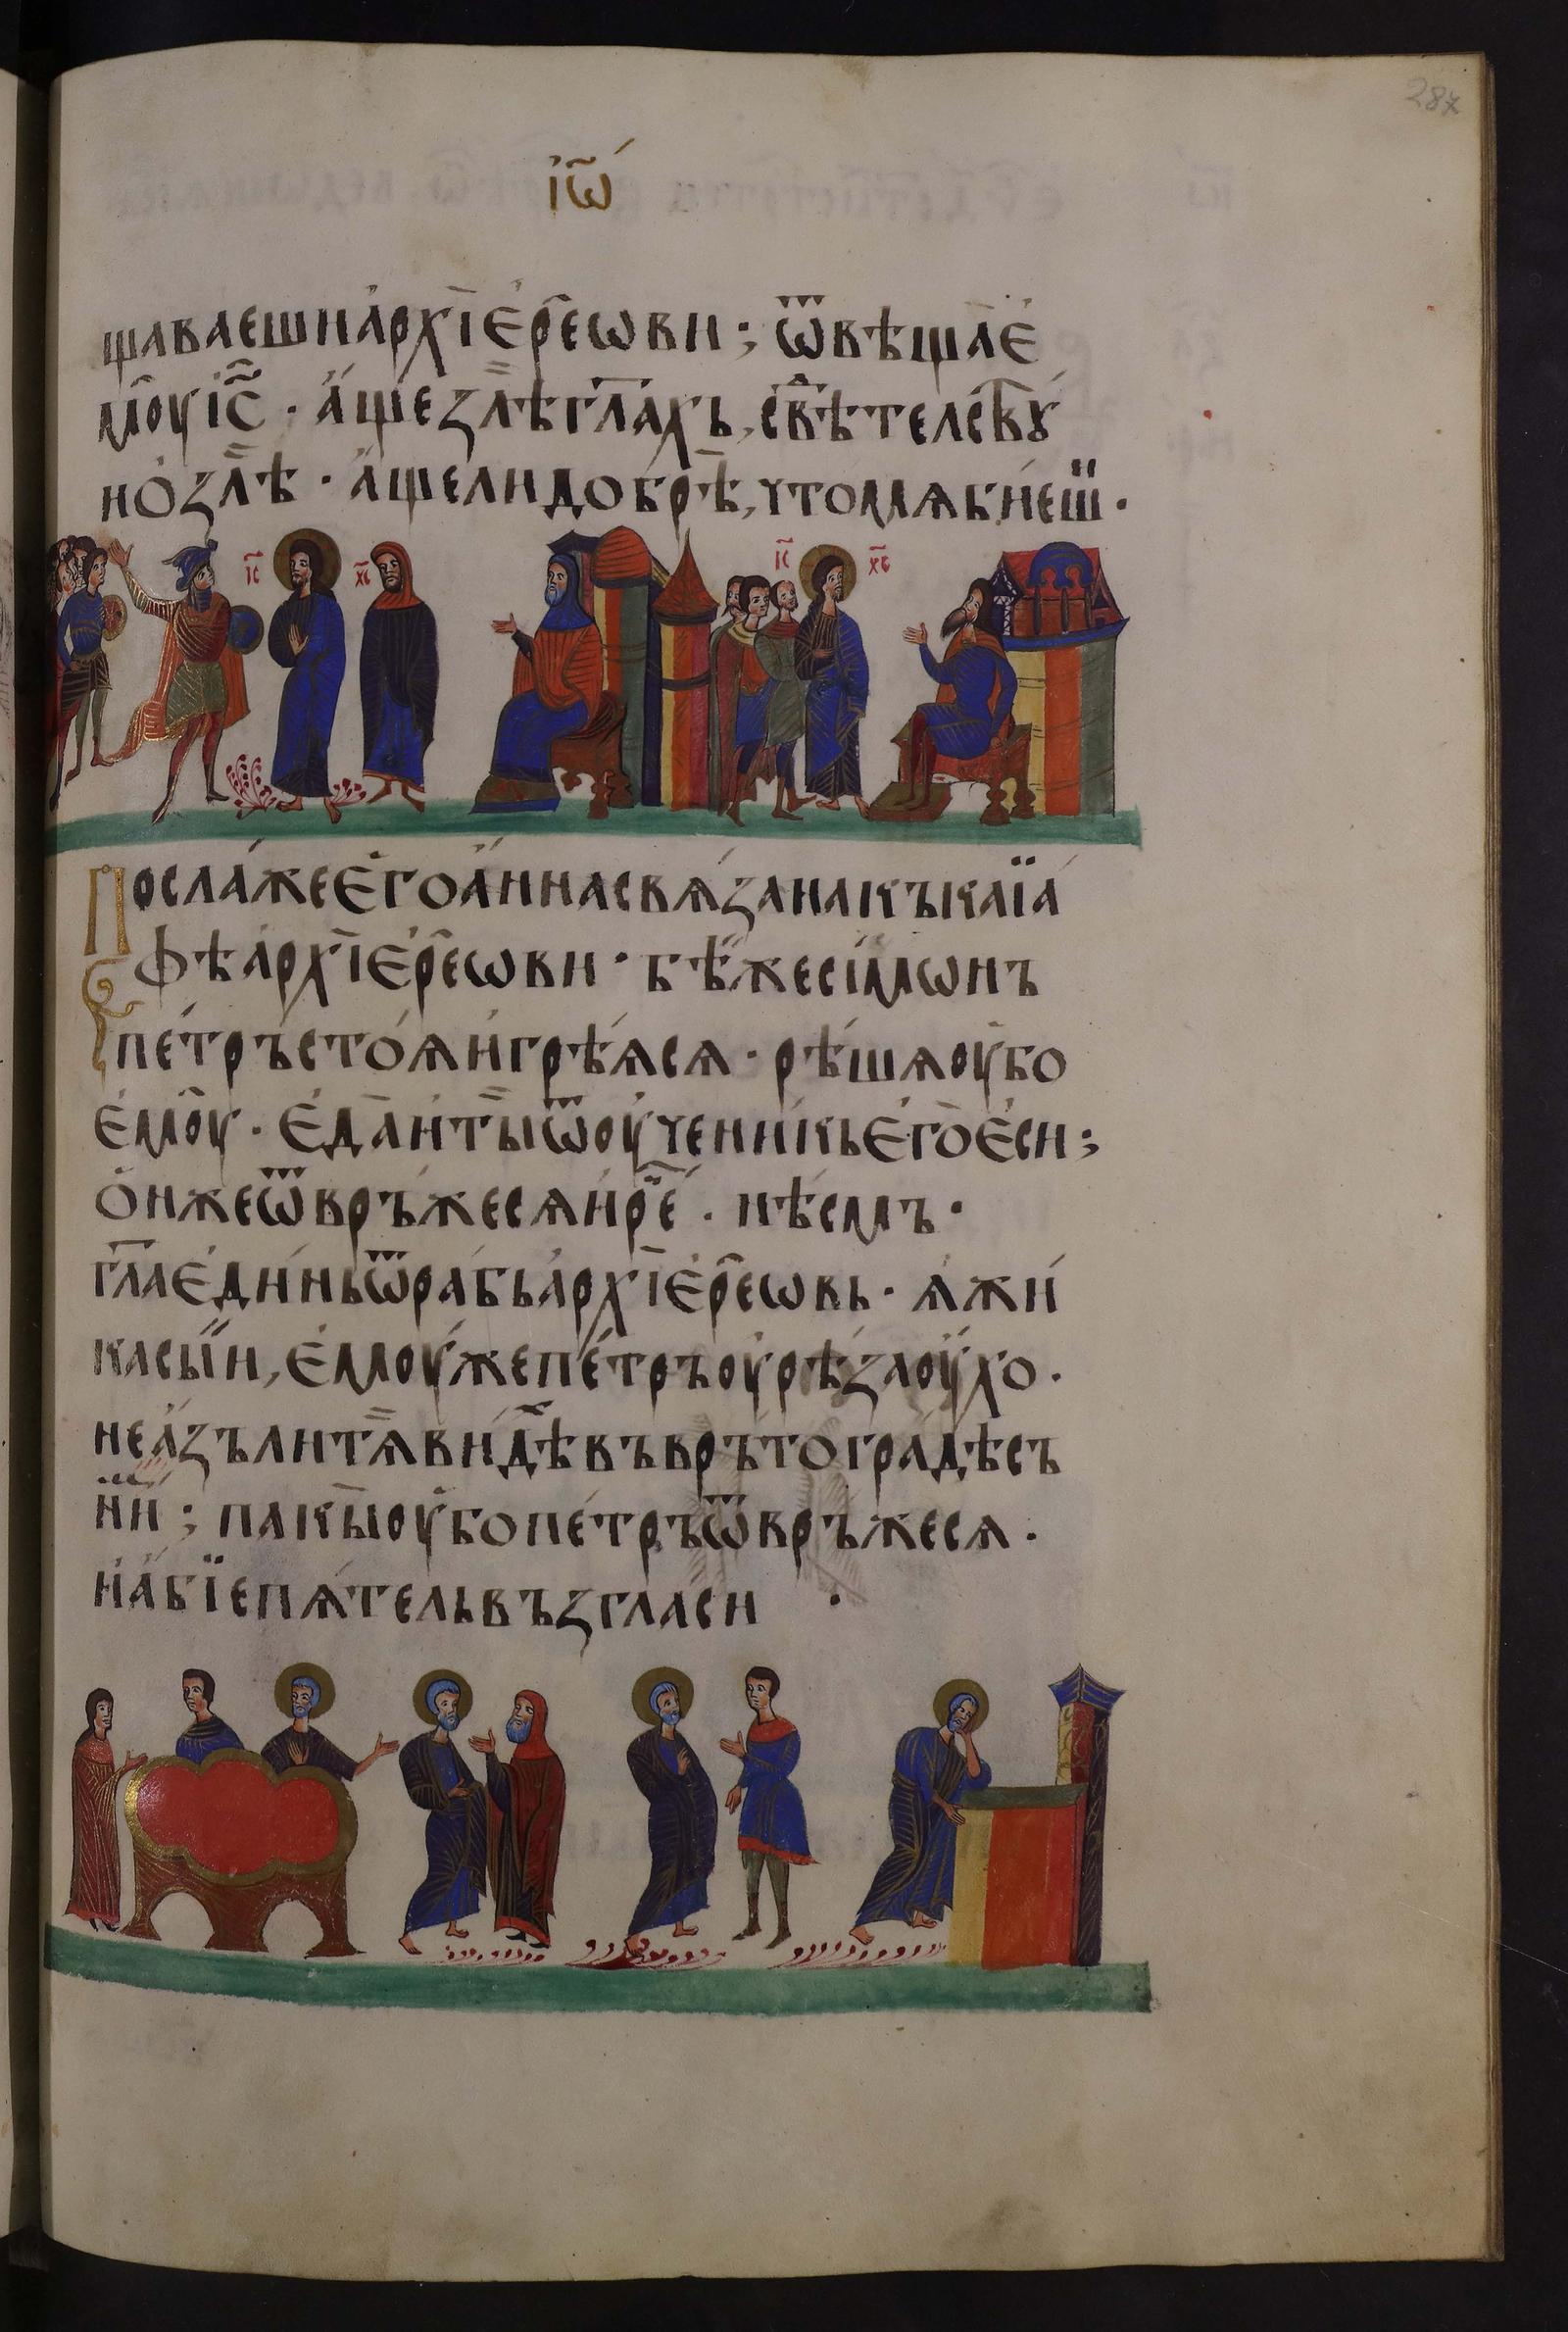 287
ІѠ҃
щаваешиархїерⷭ҇еѡви; ѿвѣщае
моуі҃с · ащеꙁлѣгл҃ахь, свⷣѣтелсвⷮꙋ
ноꙁлѣ · ащелидобрѣ, чтомѧбїеш ·
і҃с х҃с
і҃с х҃с
Послажеегоаннасвѧꙁанакъкаїа
фѣархїереѡви · бѣжесімѡнъ
петръстоѧигрѣѧсѧ · рѣшѧоубо
емоу · едаитыѿоученикьегоеси;
ѻнжеѿвръжесѧирⷱ҇е · нѣсмъ ·
гл҃аединьѿрабьархїереѡвь · ѫжи
касыи, емоужепетръоурѣꙁаоухо ·
неаꙁълитѧвидⷯѣвъврътоградѣсъ
ниⷨ; пакыоубопетръѿвръжесѧ ·
иабїепѧтельвъꙁгласи ·